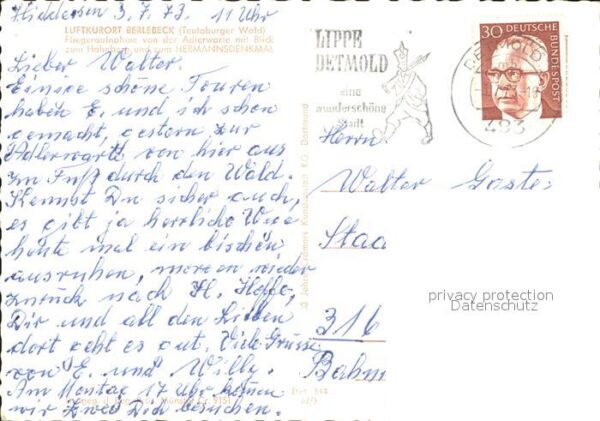 Hiddesen 3.7.73. 11 Uhr
LUFTKURORT BERLEBECK (Teutoburger Wald)
Fliegeraufnahme von der Adlerwarte mit Blick
zum Hahnberg und zum HERMANNSDENKMAL
Lieber Walter.
Einige schöne Touren
haben E. und ich schon
gemacht, gestern zur
Adlerwarte von hier aus
zu Fuß durch den Wald.
Kennst Du sicher auch,
es gibt ja herrliche Wege
heute mal ein bischen
ausruhen, morgen wieder
zurück nach H.
Dir und all den Lieben
dort geht es gut. Viele Grüsse
von E. und Willy.
Am Montag 17 Uhr kommen
wir zwei Dich besuchen.
LIPPE
DETMOLD
eine
wunderschöne
Stadt
30 DEUTSCHE
BUNDESPOST
DETMOLD
493
Herrn
Walter Gaste
Staa
316
Bahn
privacy protection
Datenschutz